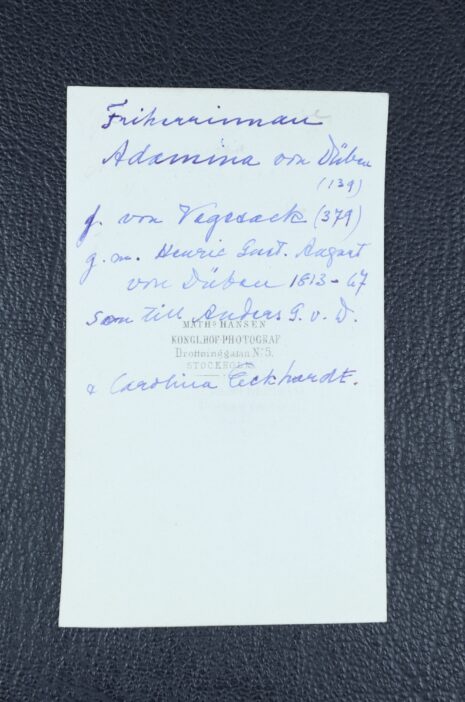 Friherrinnan
Adamina von Düben
(139)
f. von Vegesack (379)
g. m. Henric Gust. August
von Düben 1813-67
son till Anders G. v. D.
MATHS HANSEN
KONGL.HOF-PHOTOGRAF
Drottninggatan No 5.
STOCKHOLM
& Carolina Eckhardt.